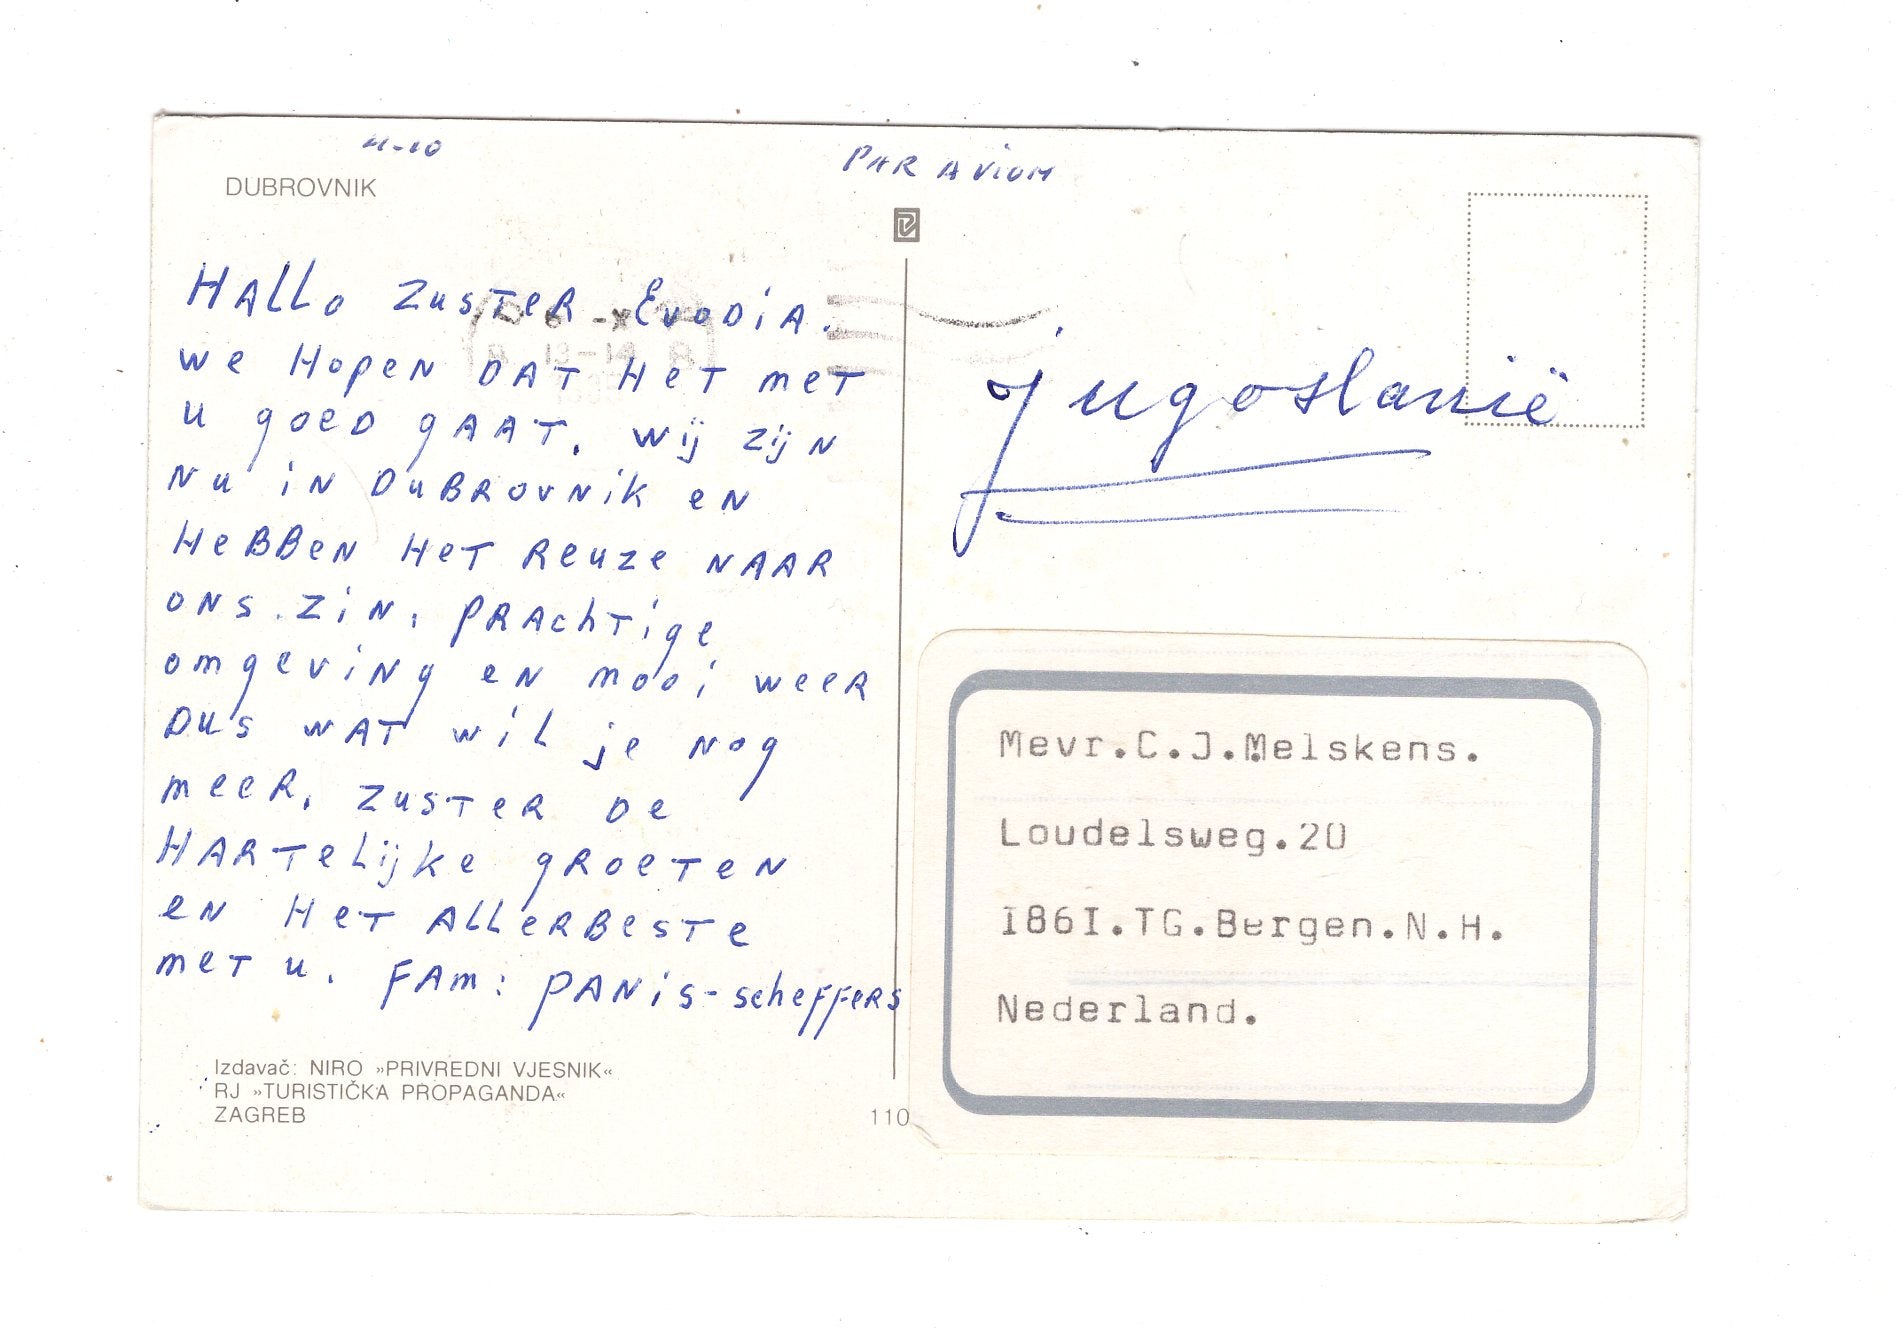 4-10
PAR AVION
DUBROVNIK
HALLO ZUSTER EVODIA.
WE HOPEN DAT HET MET
U GOED GAAT. WIJ ZIJN
NU IN DUBROVNIK EN
HEBBEN HET REUZE NAAR
ONS ZIN. PRACHTIGE
OMGEVING EN MOOI WEER
DUS WAT WIL JE NOG
MEER. ZUSTER DE
HARTELIJKE GROETEN
EN HET ALLERBESTE
MET U. FAM: PANIS-SCHEFFERS
Izdavač: NIRO »PRIVREDNI VJESNIK«
RJ »TURISTIČKA PROPAGANDA«
ZAGREB
110
Jugoslanië
Mevr.C.J.Melskens.
Loudelsweg.20
I86I.TG.Bergen.N.H.
Nederland.